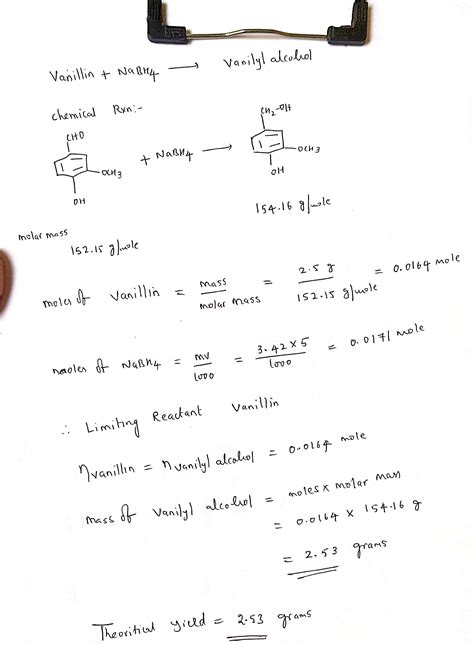 Vanillin + NaBH4 → Vanilyl alcohol
chemical Rxn:-
CHO
OCH3
OH
+ NaBH4 →
CH2-OH
OCH3
OH
154.16 g/mole
molar mass
152.15 g/mole
moles of Vanillin = mass / molar mass = 2.5 g / 152.15 g/mole = 0.0164 mole
moles of NaBH4 = mv / 1000 = 3.42 × 5 / 1000 = 0.0171 mole
∴ Limiting Reactant Vanillin
ηvanillin = ηvanilyl alcohol = 0.0164 mole
mass of Vanilyl alcohol = moles x molar mass
= 0.0164 × 154.16 g
= 2.53 grams
Theoritical yield = 2.53 grams